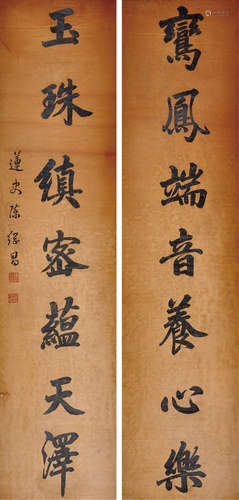 鸞鳳端音養心樂
玉珠縝密蘊天澤
蓮史陳繼昌